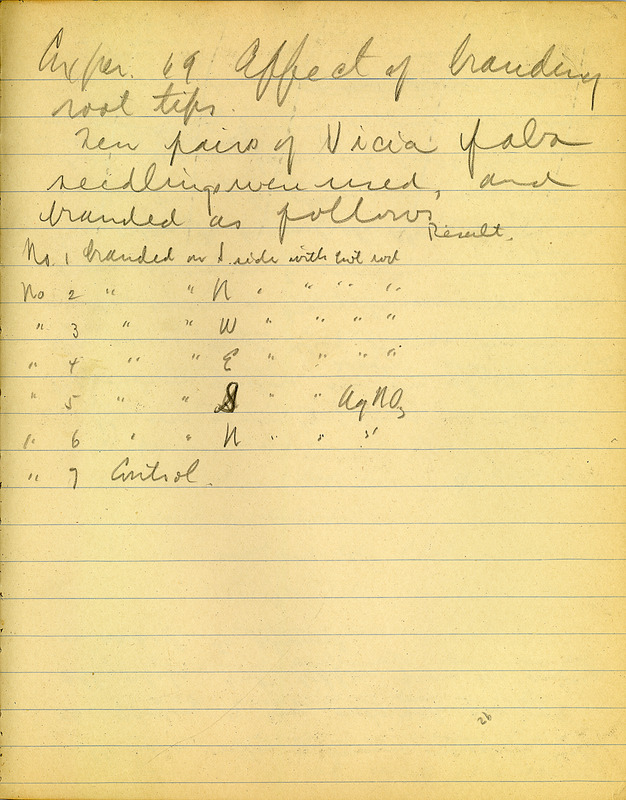 Exper. 69 Affect of branding
root tips.
Ten pairs of Vicia faba
seedlings were used, and
branded as follows
Result.
No. 1 branded on S side with hot rod
No 2 " " N " " " "
" 3 " " W " " " "
" 4 " " E " " " "
" 5 " " S " " AgNO3
" 6 " " N " " "
" 7 Control.
26